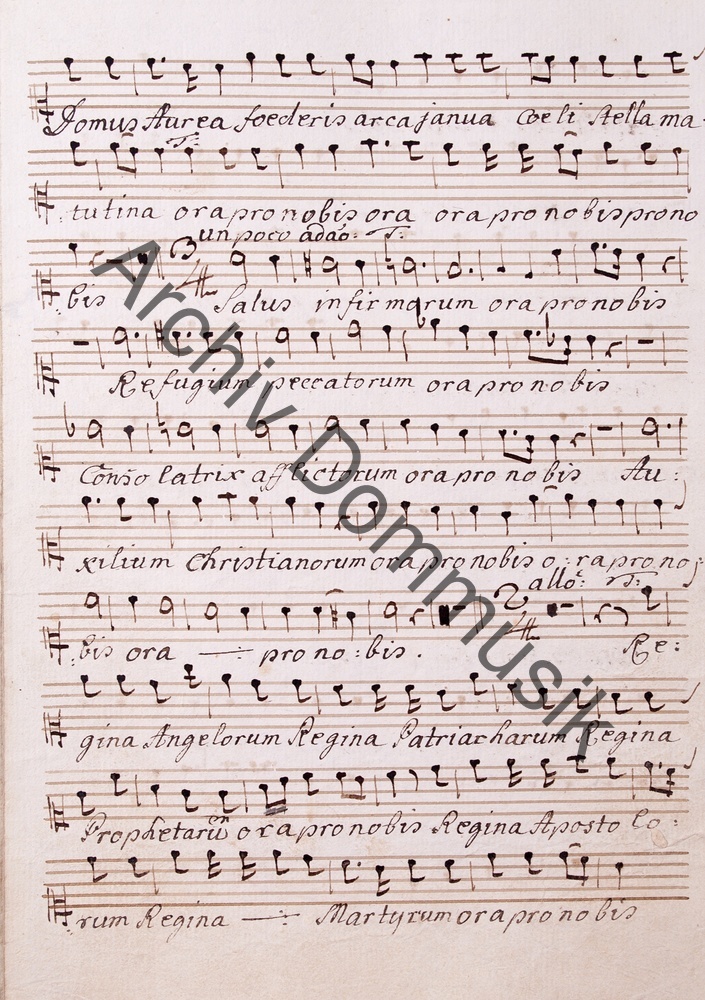 Domus Aurea foederis arca janua Coeli Stella ma
tutina ora pro nobis ora ora pro nobis pro no
un poco ada͠o: T:
bis Salus infirmorum ora pro nobis
Refugium peccatorum ora pro nobis
Conso latrix afflictorum ora pro nobis Au:
xilium Christianorum ora pro nobis o: ra pro no
allo: T:
bis ora — pro no: bis. Re:
gina Angelorum Regina Patriarcharum Regina
Prophetarum ora pro nobis Regina Aposto lo:
rum Regina — Martyrum ora pro nobis
Archiv Dommusik